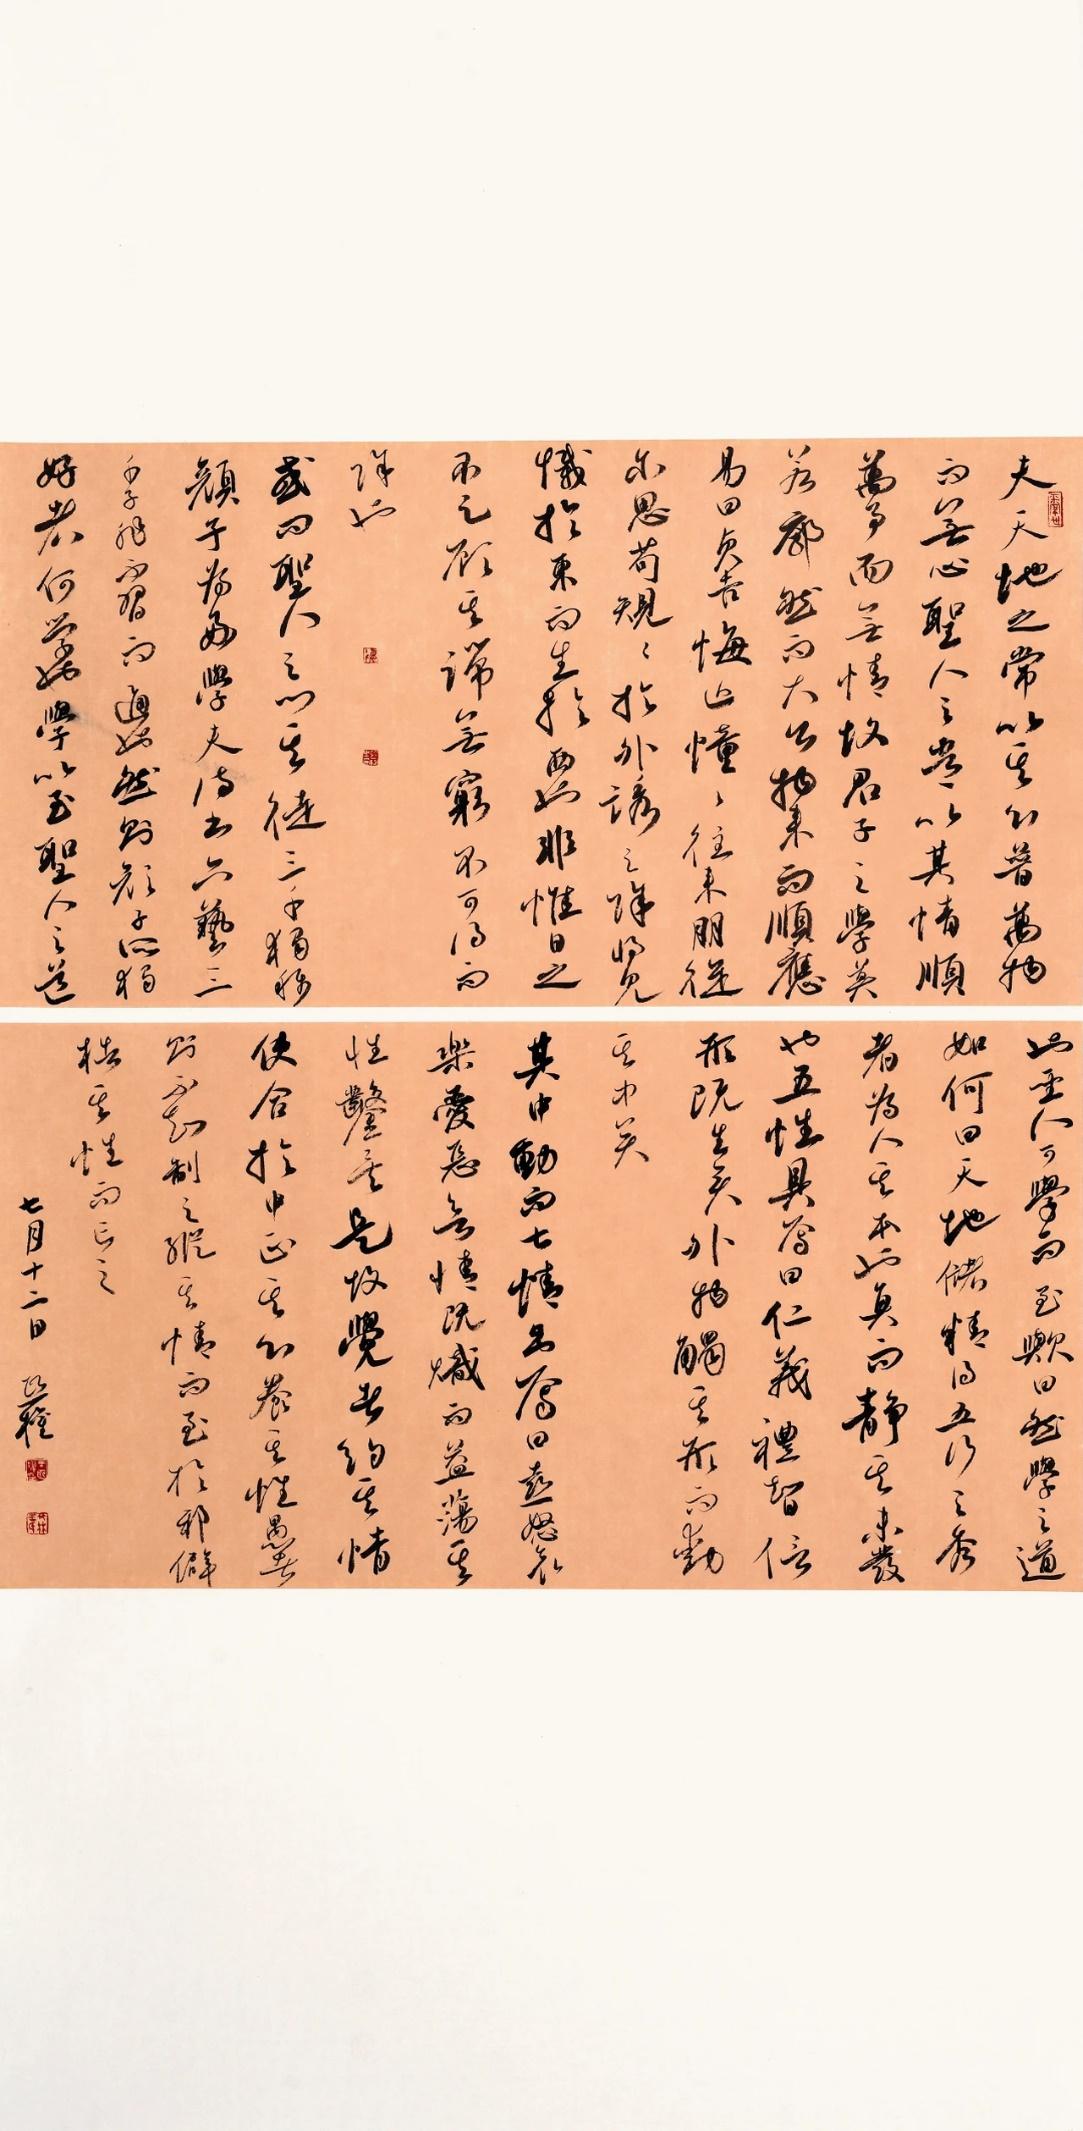 夫天地之常以其心普萬物
而無心聖人之常以其情順
萬事而無情故君子之學莫
若廓然而大公物來而順應
易曰貞吉悔亡憧憧往來朋從
爾思苟規規於外誘之除將見
滅於東而生於西也非惟日之
不足顧其端無窮不可得而
除也
或問聖人之門其徒三千獨稱
顏子為好學夫詩書六藝三
千子非不習而通也然則顏子所獨
好者何學也學以至聖人之道
也聖人可學而至歟曰然學之道
如何曰天地儲精得五行之秀
者為人其本也真而靜其未發
也五性具焉曰仁義禮智信
形既生矣外物觸其形而動
其中矣
其中動而七情出焉曰喜怒哀
樂愛惡欲情既熾而益蕩其
性鑿矣是故覺者約其情
使合於中正其心養其性愚者
則不知制之縱其情而至於邪僻
梏其性而亡之
七月十二日